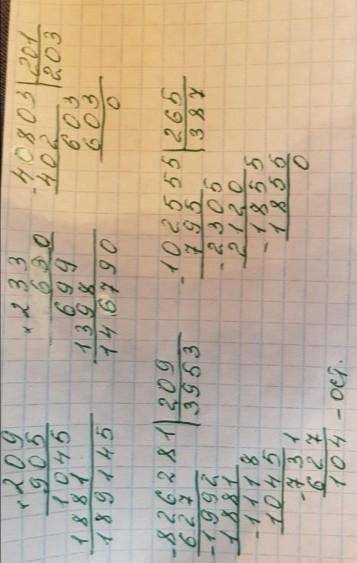 ×209
905
1045
1881
189145
×233
630
699
1398
146790
-40803|201
402 203
603
603
0
-826281|209
627 3953
-1992
1881
-1118
1045
-731
627
104 - ост.
-102555|265
795 387
-2305
2120
-1855
1855
0